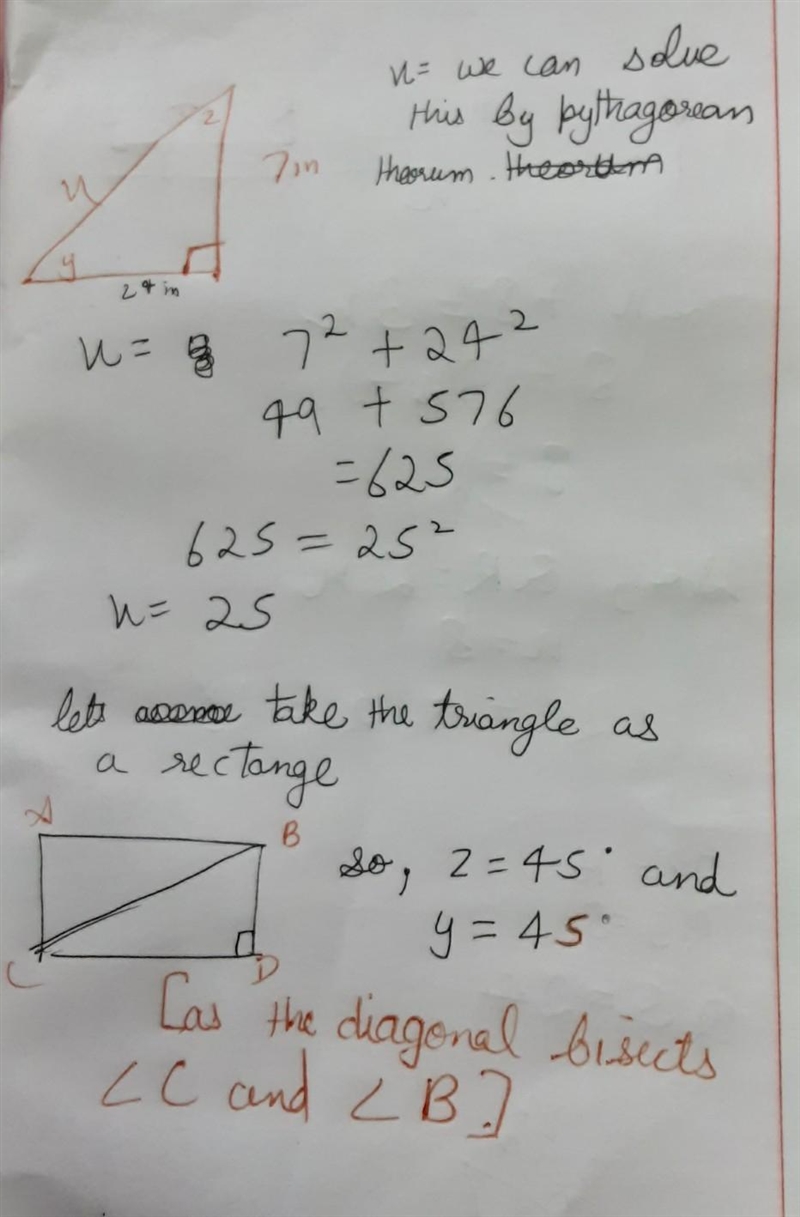 x= we can solve
this by pythagorean
theorum.
z
7in
x
y
24 in
x= 7² + 24²
49 + 576
=625
625 = 25²
x= 25
lets take the triangle as
a rectange
A
B
so, z = 45° and
y = 45°
C
D
[as the diagonal bisects
∠C and ∠B.]